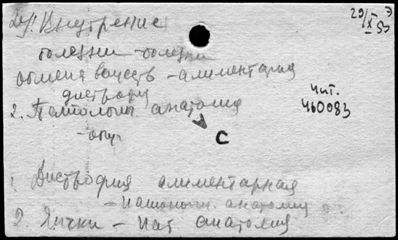 Внутрение
болезни - болезни
обмена веществ - алиментарная
дистрофия
2. Патологич анатомия
С
29/X 55
Э
чит.
460083
1. Дистрофия алиментарная
- патологич. анатомия
2. Яички - пат анатомия